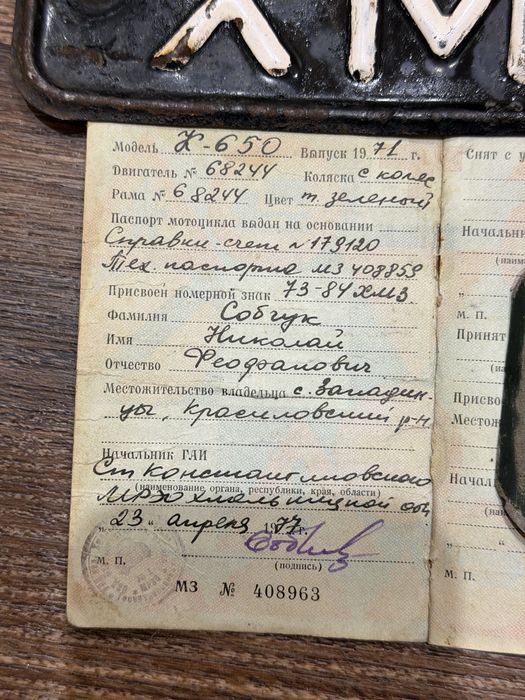 ХМ
Модель К-650 Выпуск 1971 г.
Двигатель № 68244 Коляска с коляс
Рама № 68244 Цвет т. зеленый
Паспорт мотоцикла выдан на основании
Справки-счет №179120
Тех. паспорта МЗ 408859
Присвоен номерной знак 73-84 ХМЗ
Фамилия Собчук
Имя Николай
Отчество Феофанович
Местожительство владельца с. Западин-
цы, Красиловский р-н
Начальник ГАИ
Ст Константиновского
(наименование органа, республики, края, области)
МРЭО Хмельницкой обл
„23“ апреля 1977г.
(подпись)
М. П.
МЗ № 408963
Снят с у
Начальник
(наим
М. П.
Принят
(на
Присво
Местож
Началь
(на
М. П.